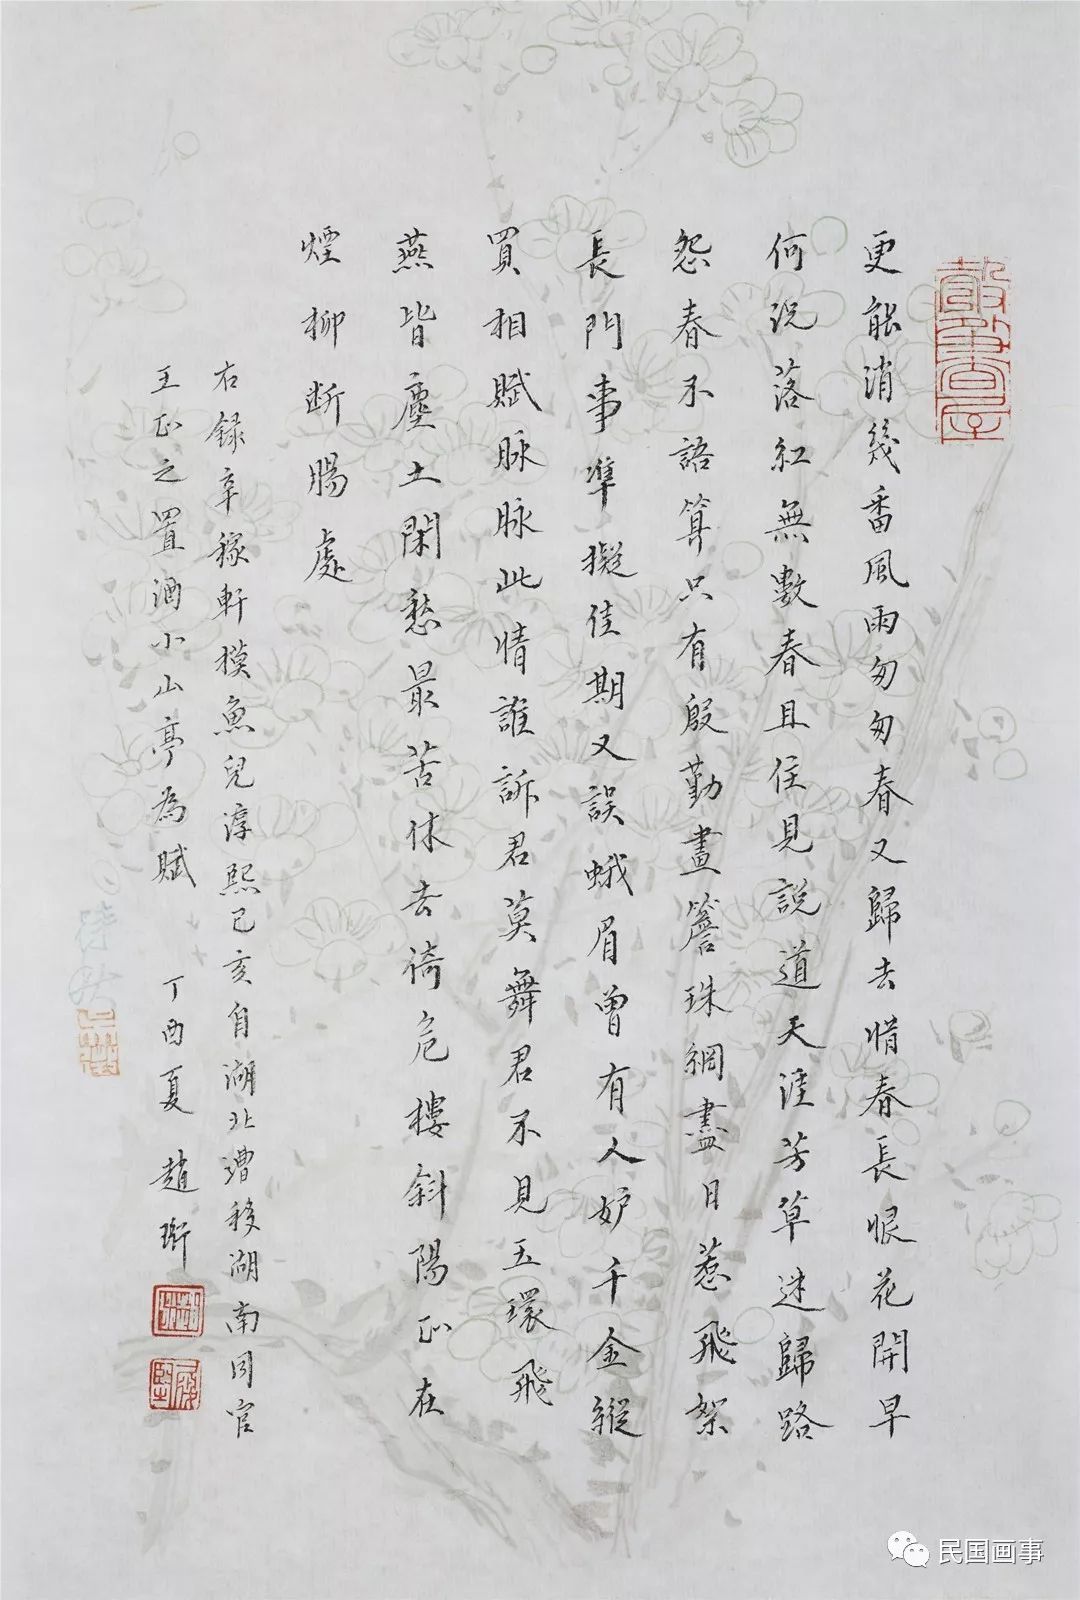 更能消幾番風雨匆匆春又歸去惜春長恨花開早
何況落紅無數春且住見說道天涯芳草迷歸路
怨春不語算只有殷勤畫簷珠網盡日惹飛絮
長門事準擬佳期又誤蛾眉曾有人妒千金縱
買相賦脉脉此情誰訴君莫舞君不見玉環飛
燕皆塵土閑愁最苦休去倚危樓斜陽正在
煙柳断腸處
右録辛稼軒摸魚兒淳熙己亥自湖北漕移湖南同官
王正之置酒小山亭為賦 丁酉夏趙珩
民国画事